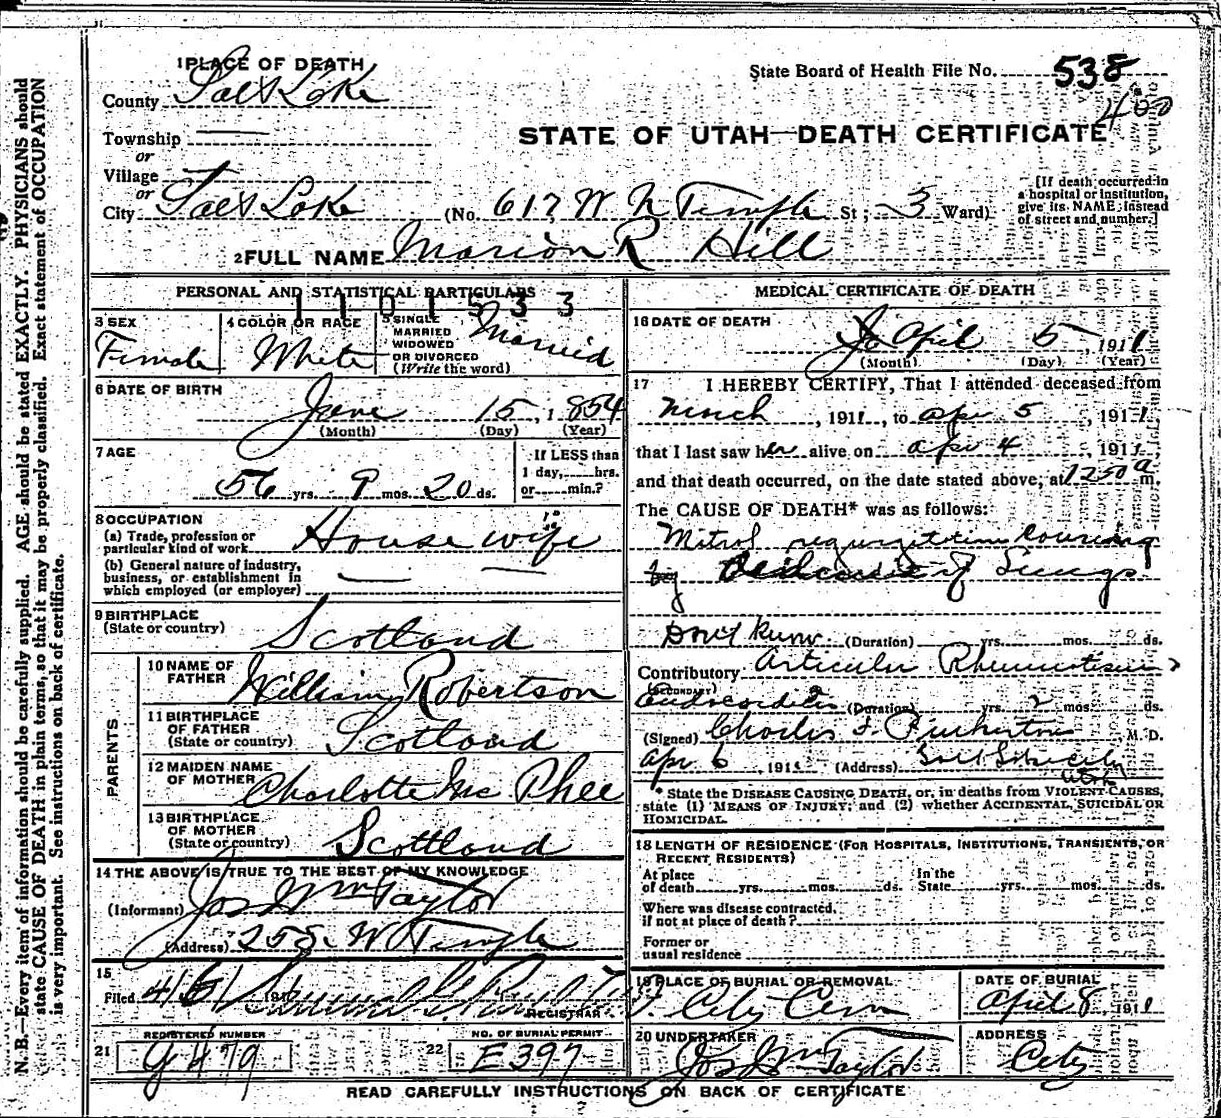 1 PLACE OF DEATH
State Board of Health File No. 538
County Salt Lake
400
Township
STATE OF UTAH—DEATH CERTIFICATE
or
Village
or
City Salt Lake (No. 617 W N Temple St; 3 Ward)
[If death occurred in a hospital or institution, give its NAME instead of street and number.]
2 FULL NAME Marion R Hill
PERSONAL AND STATISTICAL PARTICULARS
1101533
3 SEX Female
4 COLOR OR RACE White
5 SINGLE MARRIED WIDOWED OR DIVORCED (Write the word) Married
6 DATE OF BIRTH
June 15, 1854
(Month) (Day) (Year)
7 AGE
56 yrs. 9 mos. 20 ds.
If LESS than 1 day, hrs. or min.?
8 OCCUPATION
(a) Trade, profession or particular kind of work House wife
(b) General nature of industry, business, or establishment in which employed (or employer)
9 BIRTHPLACE
(State or country) Scotland
PARENTS
10 NAME OF FATHER William Robertson
11 BIRTHPLACE OF FATHER (State or country) Scotland
12 MAIDEN NAME OF MOTHER Charlotte Mc Phee
13 BIRTHPLACE OF MOTHER (State or country) Scotland
14 THE ABOVE IS TRUE TO THE BEST OF MY KNOWLEDGE
(Informant) Jos Wm Taylor
(Address) 25 S. W Temple
15
Filed 4/6/
REGISTRAR
REGISTERED NUMBER
21 G 479
NO. OF BURIAL PERMIT
22 E 397
MEDICAL CERTIFICATE OF DEATH
16 DATE OF DEATH
April 5, 1911
(Month) (Day) (Year)
17 I HEREBY CERTIFY, That I attended deceased from
March, 1911, to Apr 5 1911
that I last saw her alive on Apr 4 1911,
and that death occurred, on the date stated above, at 1250 a m.
The CAUSE OF DEATH* was as follows:
Mitral regurgitation
of Lungs
Don't Know (Duration) yrs. mos. ds.
Contributory Articular Rheumatism
(SECONDARY)
Endocarditis (Duration) yrs. 2 mos. ds.
(Signed) Charles F. Pinkerton M.D.
Apr 6, 1911 (Address) Salt Lake City
Utah
* State the DISEASE CAUSING DEATH, or, in deaths from VIOLENT CAUSES, state (1) MEANS OF INJURY; and (2) whether ACCIDENTAL, SUICIDAL OR HOMICIDAL.
18 LENGTH OF RESIDENCE (FOR HOSPITALS, INSTITUTIONS, TRANSIENTS, OR RECENT RESIDENTS)
At place of death yrs. mos. ds. In the State yrs. mos. ds.
Where was disease contracted, if not at place of death?
Former or usual residence
19 PLACE OF BURIAL OR REMOVAL
City Cem
DATE OF BURIAL
April 8, 1911
20 UNDERTAKER
Jos Wm Taylor
ADDRESS
City
READ CAREFULLY INSTRUCTIONS ON BACK OF CERTIFICATE
N. B.—Every item of information should be carefully supplied. AGE should be stated EXACTLY. PHYSICIANS should
state CAUSE OF DEATH in plain terms, so that it may be properly classified. Exact statement of OCCUPATION
is very important. See instructions on back of certificate.